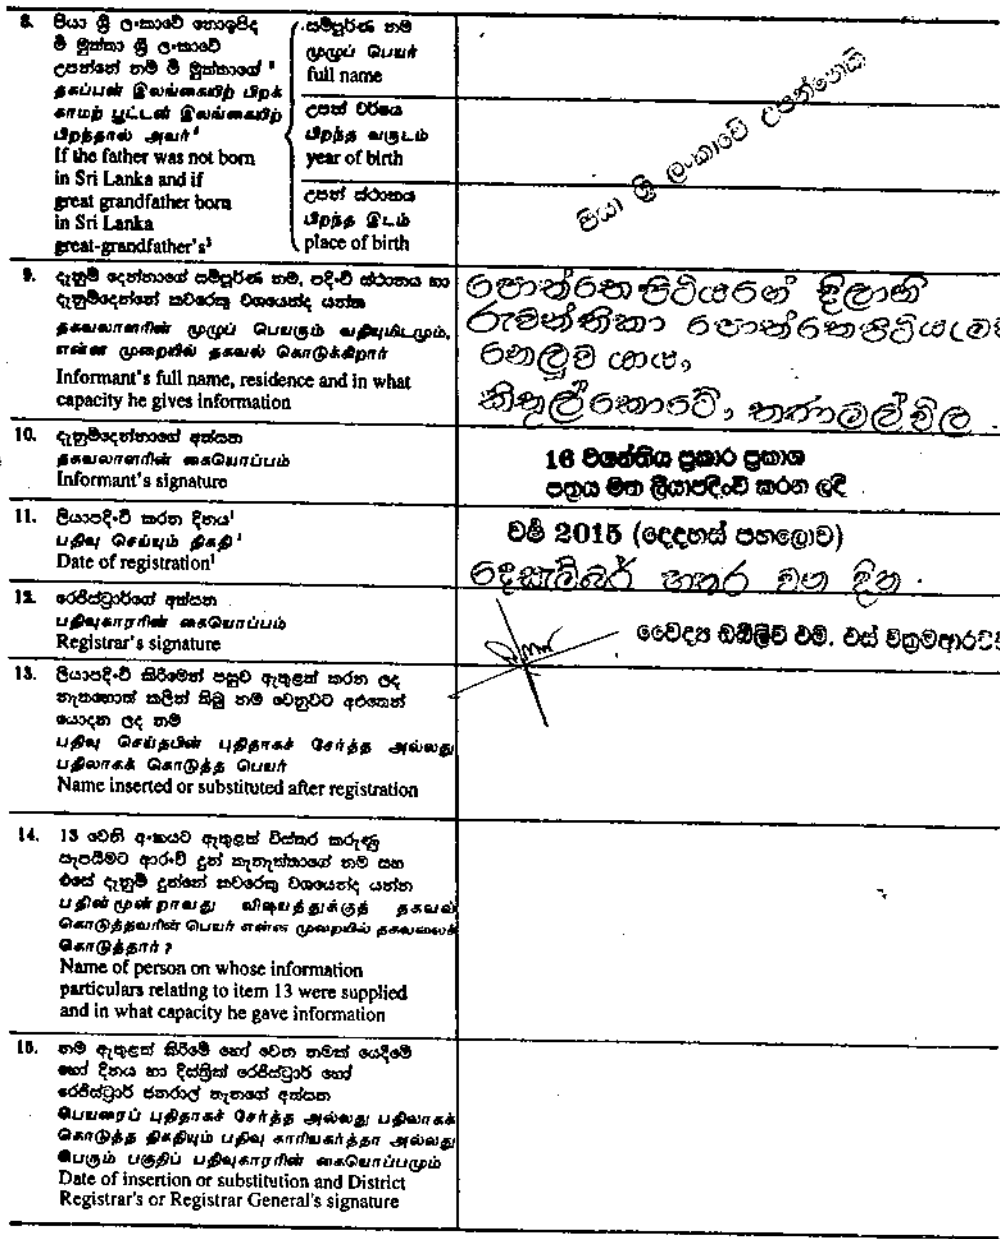 8. පියා ශ්‍රී ලංකාවේ නොඉපිද
මී මුත්තා ශ්‍රී ලංකාවේ
උපන්නේ නම් මී මුත්තාගේ ³
தகப்பன் இலங்கையிற் பிறக்
காமற் பூட்டன் இலங்கையிற்
பிறந்தால் அவர் ³
If the father was not born
in Sri Lanka and if
great grandfather born
in Sri Lanka
great-grandfather's³
සම්පූර්ණ නම
முழுப் பெயர்
full name
උපන් වර්ෂය
பிறந்த வருடம்
year of birth
උපන් ස්ථානය
பிறந்த இடம்
place of birth
පියා ශ්‍රී ලංකාවේ උපන්නෙයි
9. දැනුම් දෙන්නාගේ සම්පූර්ණ නම, පදිංචි ස්ථානය හා
දැනුම්දෙන්නේ කවරෙකු වශයෙන්ද යන්න
தகவலாளரின் முழுப் பெயரும் வதியுமிடமும்,
என்ன முறையில் தகவல் கொடுக்கிறார்
Informant's full name, residence and in what
capacity he gives information
පොත්තෙපිටියගේ දිලානි
රුවන්තිකා පොත්තෙපිටිය,මව
නෙලුව යාය,
කිතුල්කොටේ, තණමල්විල .
10. දැනුම්දෙන්නාගේ අත්සන
தகவலாளரின் கையொப்பம்
Informant's signature
16 වගන්තිය ප්‍රකාර ප්‍රකාශ
පත්‍රය මත ලියාපදිංචි කරන ලදී
11. ලියාපදිංචි කරන දිනය¹
பதிவு செய்யும் திகதி ¹
Date of registration¹
වර්ෂ 2015 (දෙදහස් පහලොව)
දෙසැම්බර් හතර වන දින .
12. රෙජිස්ට්‍රාර්ගේ අත්සන
பதிவுகாரரின் கையொப்பம்
Registrar's signature
වෛද්‍ය ඩබ්ලිව් එම්. එස් වික්‍රමආරච්චි
13. ලියාපදිංචි කිරීමෙන් පසුව ඇතුළත් කරන ලද
නැතහොත් කලින් තිබු නම වෙනුවට අරගෙන්
යොදන ලද නම
பதிவு செய்தபின் புதிதாகச் சேர்த்த அல்லது
பதிலாகக் கொடுத்த பெயர்
Name inserted or substituted after registration
14. 13 වෙනි අංකයට ඇතුළත් විස්තර කරුණු
සැපයීමට ආරංචි දුන් තැනැත්තාගේ නම සහ
එසේ දැනුම් දුන්නේ කවරෙකු වශයෙන්ද යන්න
பதின்மூன்றாவது விஷயத்துக்குத் தகவல்
கொடுத்தவரின் பெயர் என்ன முறையில் தகவலைக்
கொடுத்தார் ?
Name of person on whose information
particulars relating to item 13 were supplied
and in what capacity he gave information
15. නම ඇතුළත් කිරීමේ හෝ වෙන නමක් යෙදීමේ
හෝ දිනය හා දිස්ත්‍රික් රෙජිස්ට්‍රාර් හෝ
රෙජිස්ට්‍රාර් ජනරාල් තැනගේ අත්සන
பெயரைப் புதிதாகச் சேர்த்த அல்லது பதிலாகக்
கொடுத்த திகதியும் பதிவு காரியகர்த்தா அல்லது
பெரும் பகுதிப் பதிவுகாரரின் கையொப்பமும்
Date of insertion or substitution and District
Registrar's or Registrar General's signature